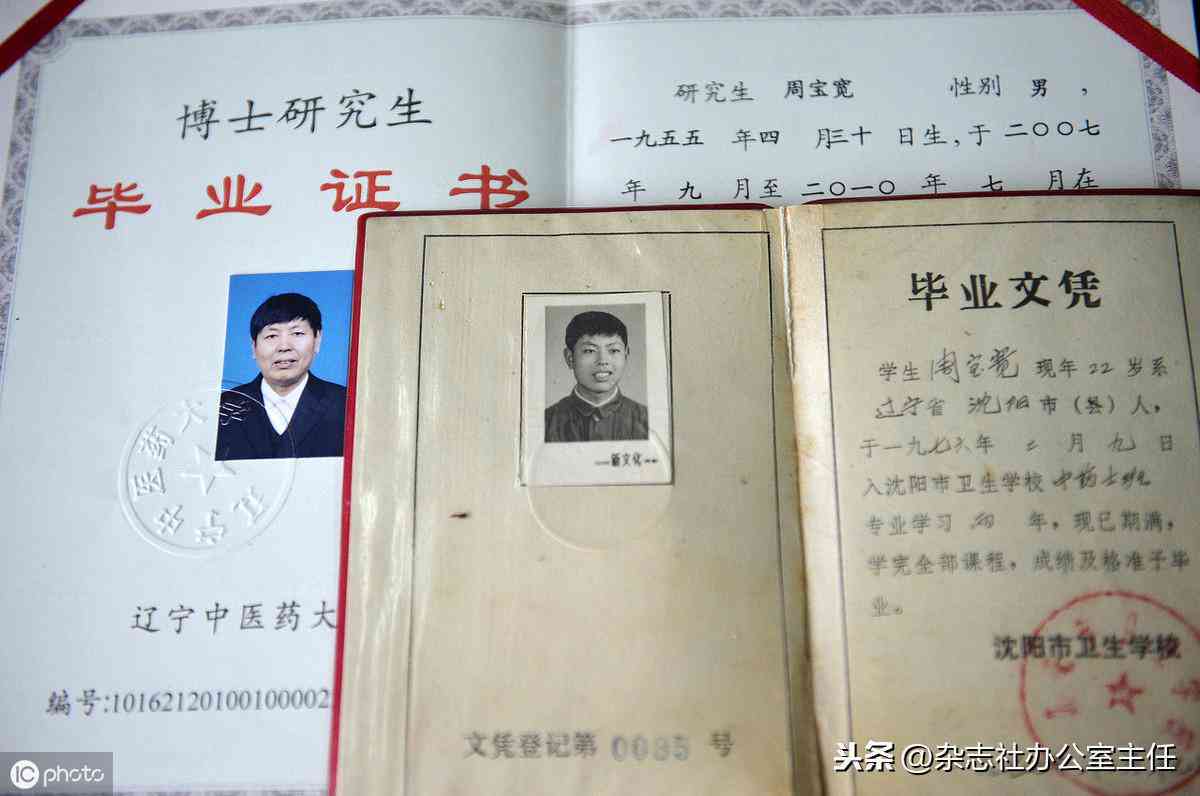 博士研究生
毕业证书
研究生 周宝宽 性别 男，
一九五五 年四 月三十 日生，于 二〇〇七
年 九 月至 二〇一〇 年 七 月在
辽宁中医药大
编号:101621201001000002
新文化
文凭登记第 0085 号
毕业文凭
学生 周宝宽 现年 22 岁系
辽宁省 沈阳市（县）人，
于一九七六年 二 月 九 日
入沈阳市卫生学校 中药士班
专业学习 两 年，现已期满，
学完全部课程，成绩及格准予毕
业。
沈阳市卫生学校
IC photo
头条 @杂志社办公室主任